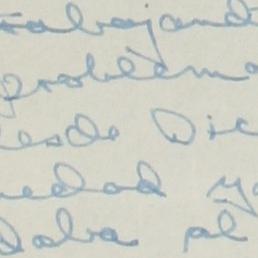 trabajand
problema
desde Dic
uedad y
Daba al